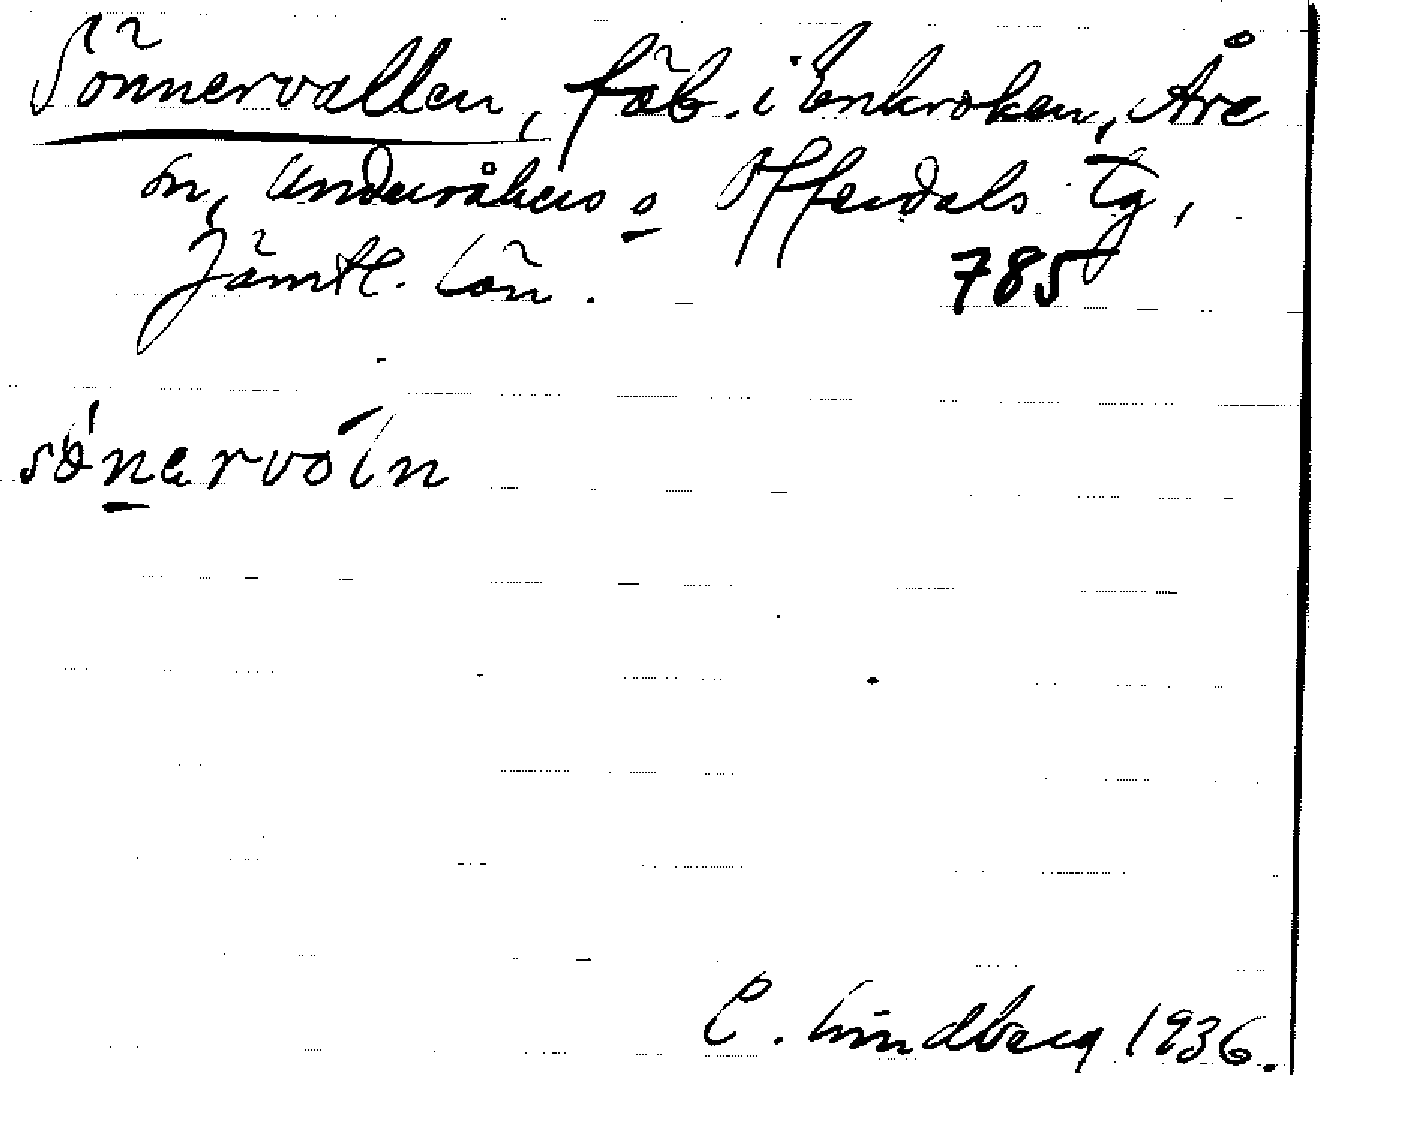 Sönnervallen, fäb. i Enkroken, Åre
sn, Undersåkers o Offerdals tg,
Jämtl. län. 785
C. Lindberg 1936.